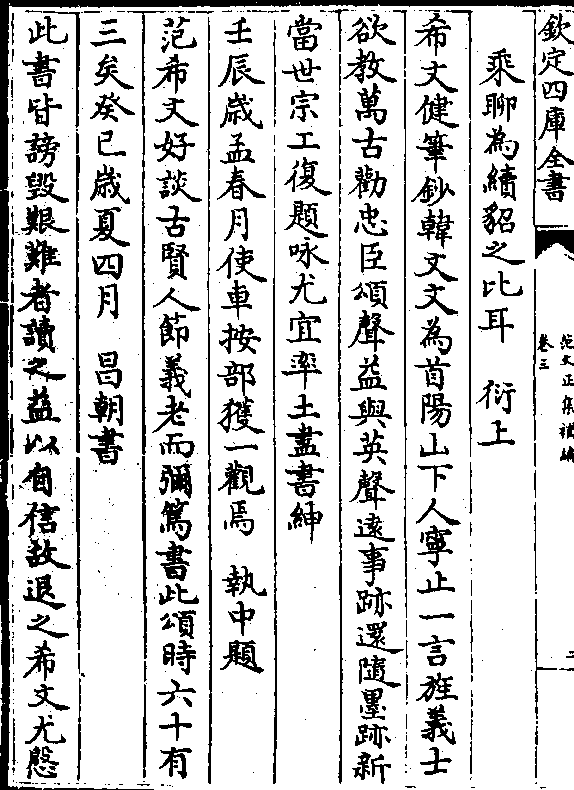 欽定四庫全書
范文正集補編
卷三
二
乘聊為續貂之比耳　衍上
希文健筆鈔韓文文為首陽山下人寧止一言旌義士
欲教萬古勸忠臣頌聲益與英聲遠事跡還隨墨跡新
當世宗工復題咏尤宜率土盡書紳
壬辰歲孟春月使車按部獲一觀焉　執中題
范希文好談古賢人節義老而彌篤書此頌時六十有
三矣癸巳歲夏四月　昌朝書
此書皆謗毀艱難者讀之益以自信故退之希文尤慇